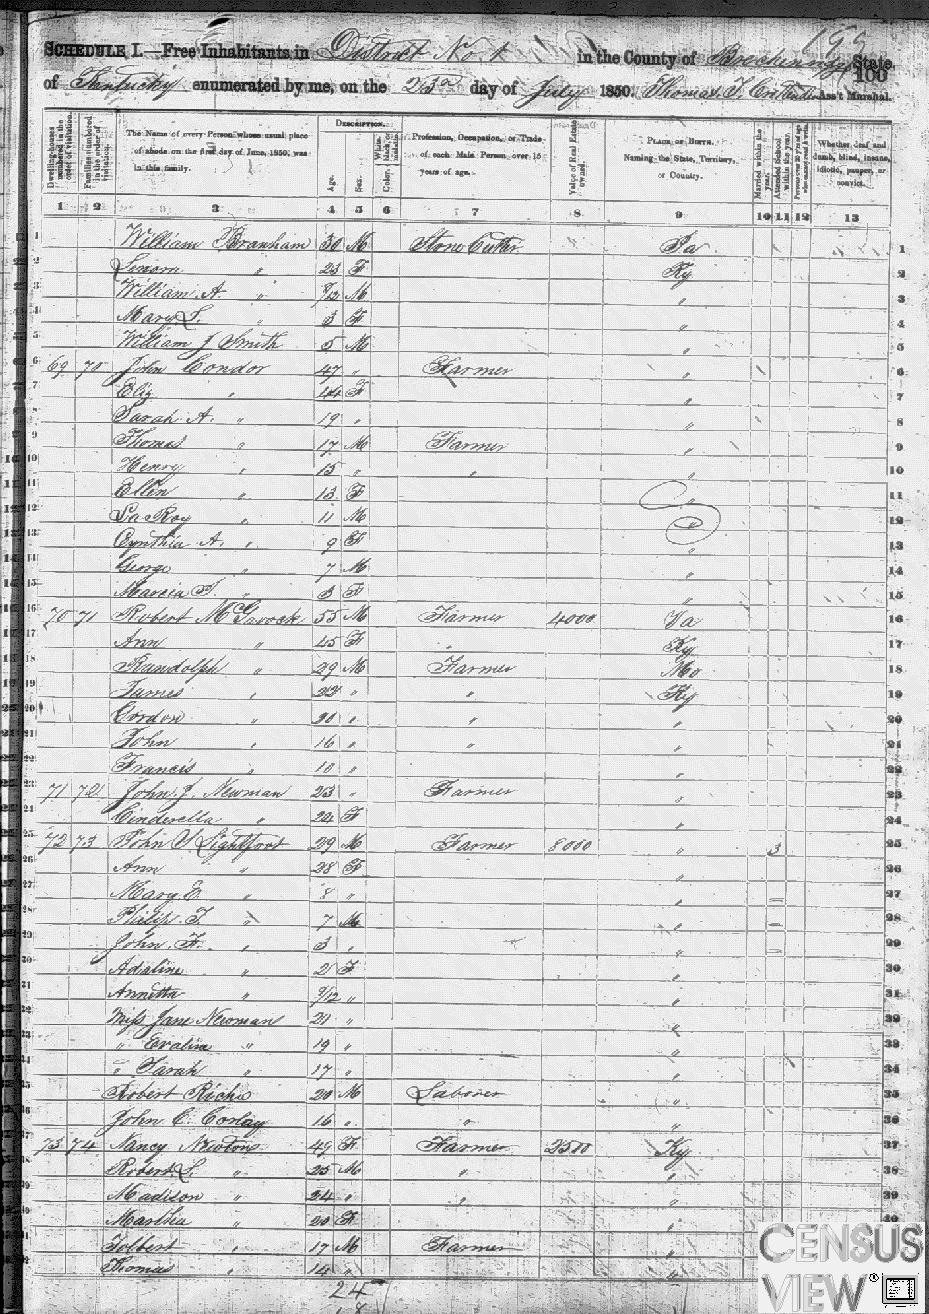 199
SCHEDULE I.—Free Inhabitants in District No 1 in the County of Breckenridge State
of Kentucky enumerated by me, on the 23d day of July 1850. Thomas J. Ass't Marshal.
100
Dwelling-houses numbered in the order of visitation.
Families numbered in the order of visitation.
The Name of every Person whose usual place of abode on the first day of June, 1850, was in this family.
DESCRIPTION.
Age.
Sex.
Color, White, black, or mulatto.
Profession, Occupation, or Trade of each Male Person over 15 years of age.
Value of Real Estate owned.
PLACE OF BIRTH.
Naming the State, Territory, or Country.
Married within the year.
Attended School within the year.
Persons over 20 y'rs of age who cannot read & write.
Whether deaf and dumb, blind, insane, idiotic, pauper, or convict.
1 2 3 4 5 6 7 8 9 10 11 12 13
1 William Branham 30 M Stone Cutter 1
2 " 23 F Ky 2
3 William A. " /12 M " 3
4 Mary L. " 3 F " 4
5 William J Smith 5 M " 5
6 69 70 John Condor 47 " Farmer " 6
7 Eliz " 44 F " 7
8 Sarah A. " 19 " " 8
9 Thomas " 17 M Farmer " 9
10 Henry " 15 " " " 10
11 Ellen " 13 F " 11
12 LaRoy " 11 M " 12
13 Cynthia A. " 9 F " 13
14 George " 7 M " 14
15 " 3 F " 15
16 70 71 Robert McGavock 55 M Farmer 4000 Va 16
17 Ann " 45 F " Ky 17
18 Randolph " 29 M Farmer Mo 18
19 James " 22 " " Ky 19
20 Gordon " 20 " " " 20
21 John " 16 " " " 21
22 Francis " 10 " " 22
23 71 72 John J. Newman 23 " Farmer " 23
24 Cinderella " 24 F " 24
25 72 73 John Lightfoot 29 M Farmer 8000 " 3 25
26 Ann " 28 F " 26
27 Mary E " 8 " " 27
28 Philip T. " 7 M " 28
29 John F. " 3 " " 29
30 Adaline " 2 F " 30
31 Annetta " 9/12 " " 31
32 Miss Jane Newman 21 " " 32
33 " Evaline " 19 " " 33
34 " Sarah " 17 " " 34
35 Robert Richie 20 M Laborer " 35
36 John C. Conlay 16 " " " 36
37 73 74 Nancy Newton 49 F Farmer 2500 Ky 37
38 Robert L. " 25 M " " 38
39 Madison " 24 " " " 39
40 Martha " 20 F " 40
Tolbert " 17 M Farmer "
Thomas " 14 " "
24
18
CENSUS
VIEW®